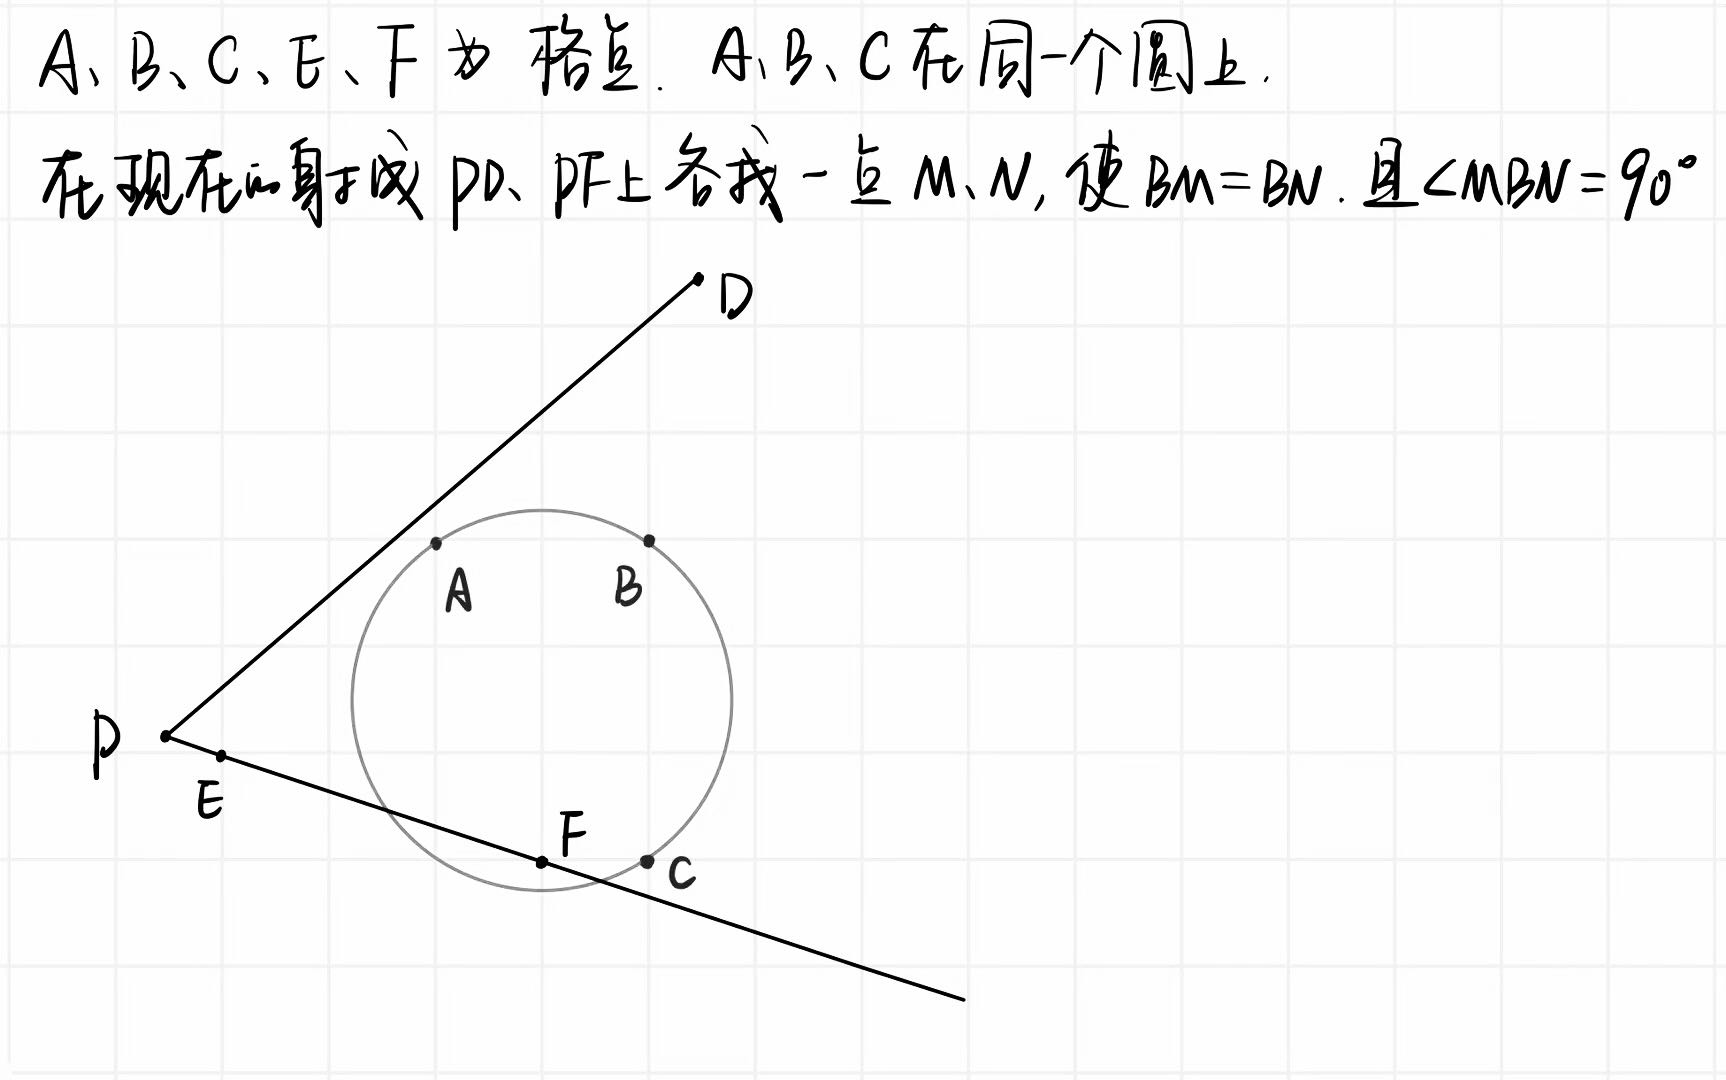 A、B、C、E、F 为 格点. A、B、C在同一个圆上.
在现在的射线 PD、PF上各找一点 M、N, 使 BM=BN. 且<MBN=90°
D
A
B
P
E
F
C